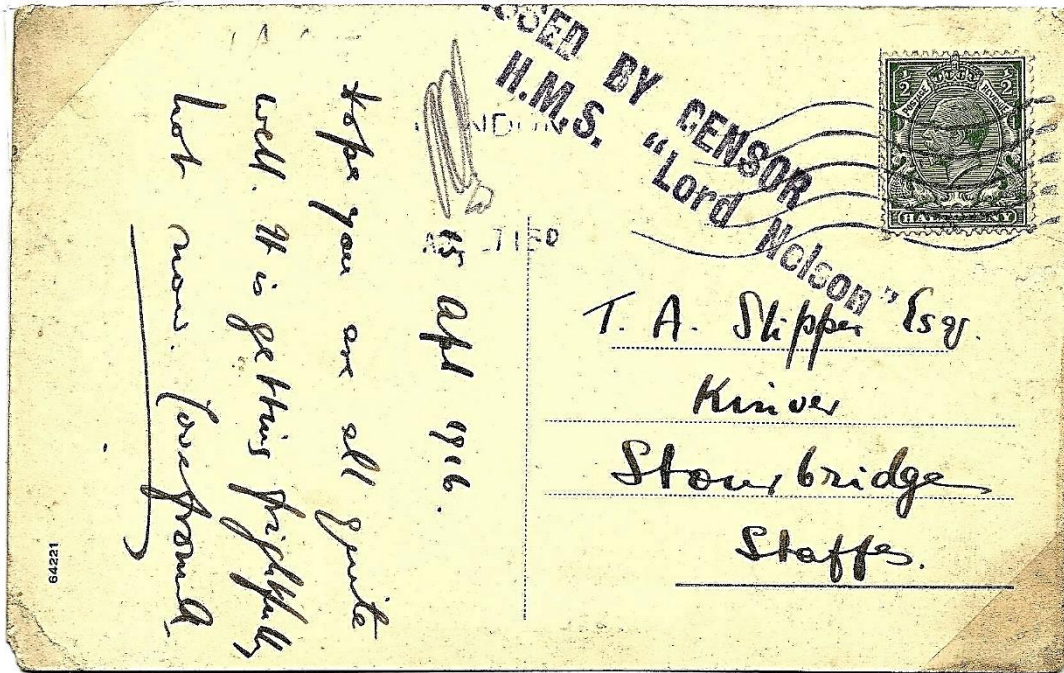 PASSED BY CENSOR
H.M.S. "Lord Nelson"
½ ½
POSTAGE REVENUE
HALFPENNY
LONDON
15 Apl 1916.
Hope you are all quite
well. It is getting frightfully
hot now. Love from
T. A. Slipper Esq.
Kinver
Stourbridge
Staffs.
64221